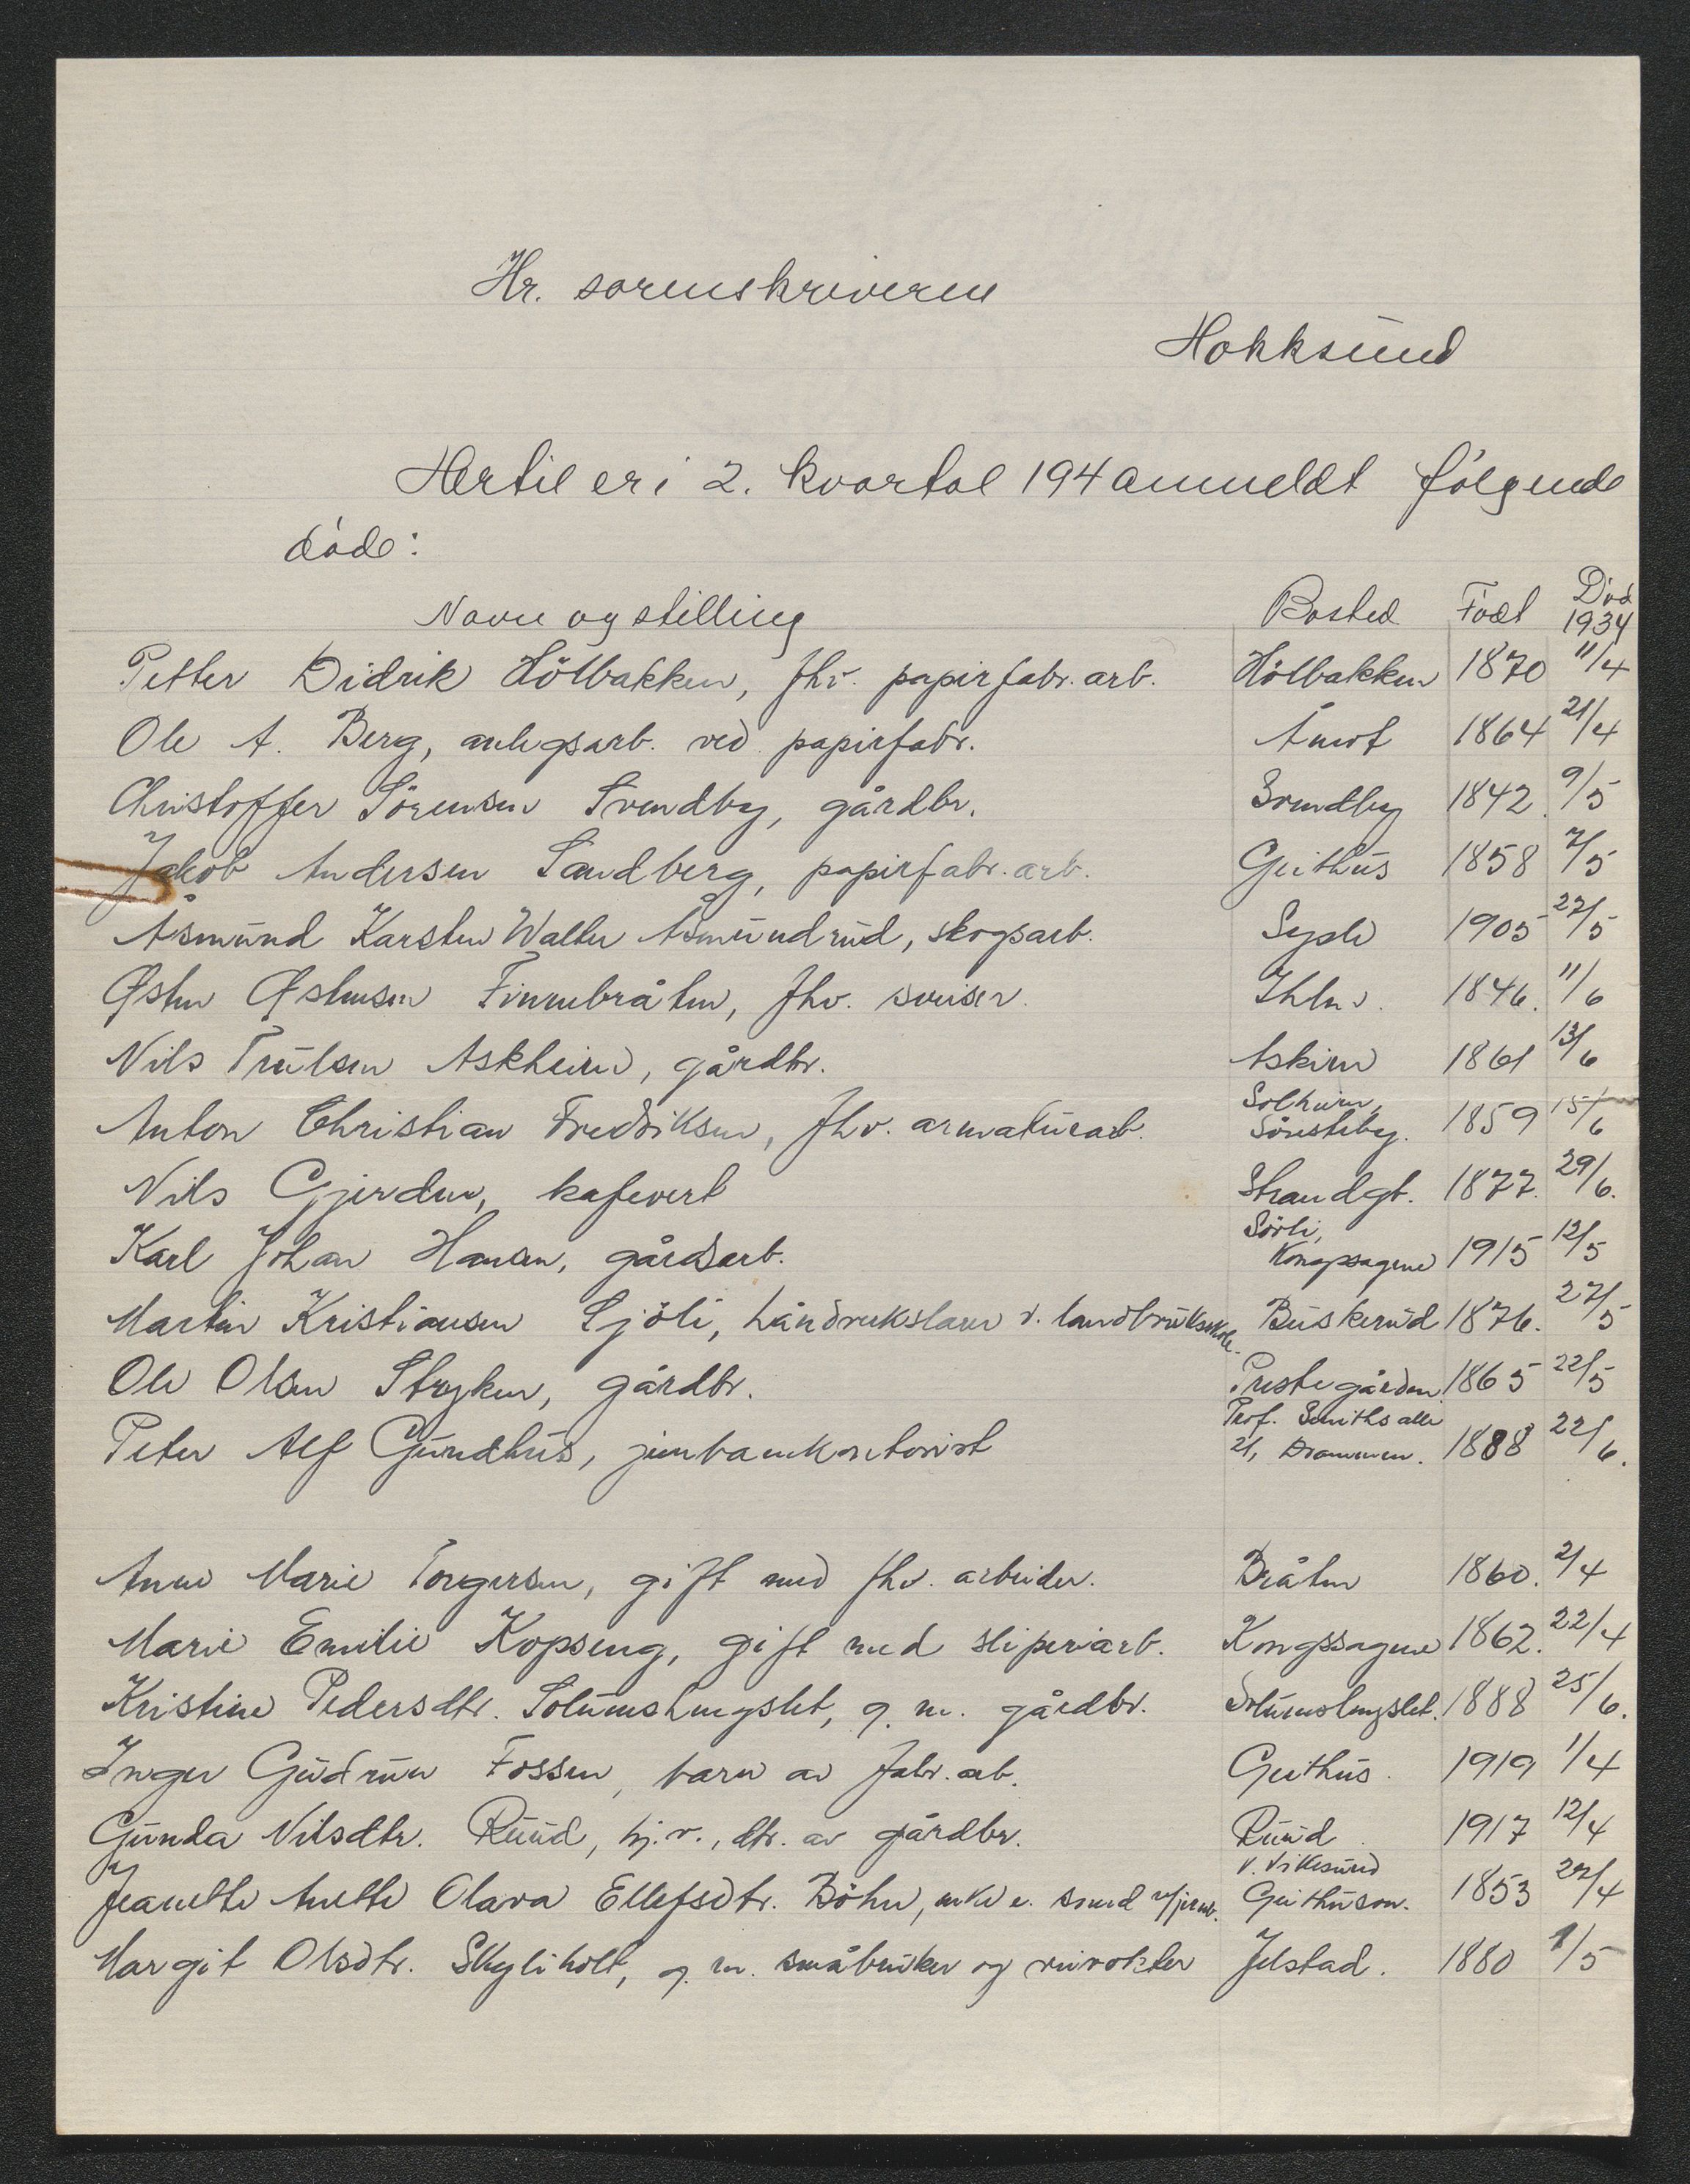 Hr. sorenskriveren
Hokksund
Hertil er i 2. kvartal 194 anmeldt følgende
døde:
Navn og stilling Bosted Født Død 1934
Petter Didrik Hölbakken, fhv. papirfabr. arb. Hölbakken 1870 11/4
Ole A. Berg, anlegsarb. ved papirfabr. Åmot 1864 21/4
Christoffer Sörensen Svendby, gårdbr. Svendby 1842. 9/5
Jakob Andersen Sandberg, papirfabr. arb. Geithus 1858 7/5
Åsmund Karsten Walter Åsmundrud, skogsarb. Sysle 1905 27/5
Østen Østensen Finnebråten, fhv. sveiser. Ihlen. 1846. 11/6
Nils Trulsen Askheim, gårdbr. Askim 1861 13/6
Anton Christian Fredriksen, fhv. armaturarb. Solheim, Sönsteby. 1859 15/6
Nils Gjerden, kafevert Strandgt. 1877. 29/6.
Karl Johan Hansen, gårdsarb. Sörli, Kongssagene 1915 12/5
Martin Kristiansen Sjöli, håndverkslærer v. landbruksskole. Buskerud 1876. 27/5
Ole Olsen Stryken, gårdbr. Prestegården 1865 22/5
Peter Alf Gundhus, jernbanekontorist Prof. Smiths alle 21, Drammen. 1888 22/6.
Anne Marie Torgersen, gift med fhv. arbeider. Bråten 1860. 2/4
Marie Emilie Kopseng, gift med sliperiarb. Kongssagene 1862. 22/4
Kristine Pedersdtr. Solumslengslet, g. m. gårdbr. Solumslengslet. 1888 25/6.
Inger Gudrun Fossen, barn av fabr. arb. Geithus. 1919 1/4
Gunda Nilsdtr. Ruud, hj.v., dtr. av gårdbr. Ruud. v. Vikesund 1917 12/4
Jeanette Anette Olava Ellefsdtr. Böhn, enke e. smed v/jernb. Geithuson. 1853 27/4
Margit Olsdtr. Skyliholt, g. m. småbruker og veivokter Jelstad. 1880 1/5